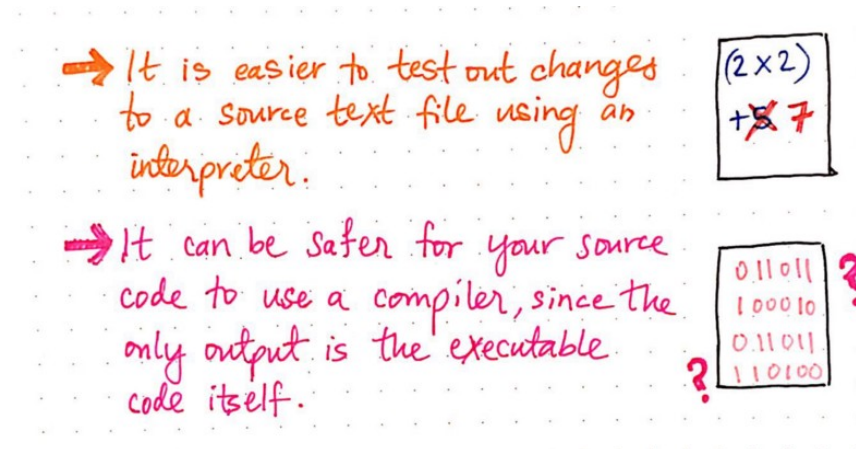 → It is easier to test out changes
to a source text file using an
interpreter.
(2×2)
+5 7
→ It can be safer for your source
code to use a compiler, since the
only output is the executable
code itself.
011011
100010
011011
110100
?
?